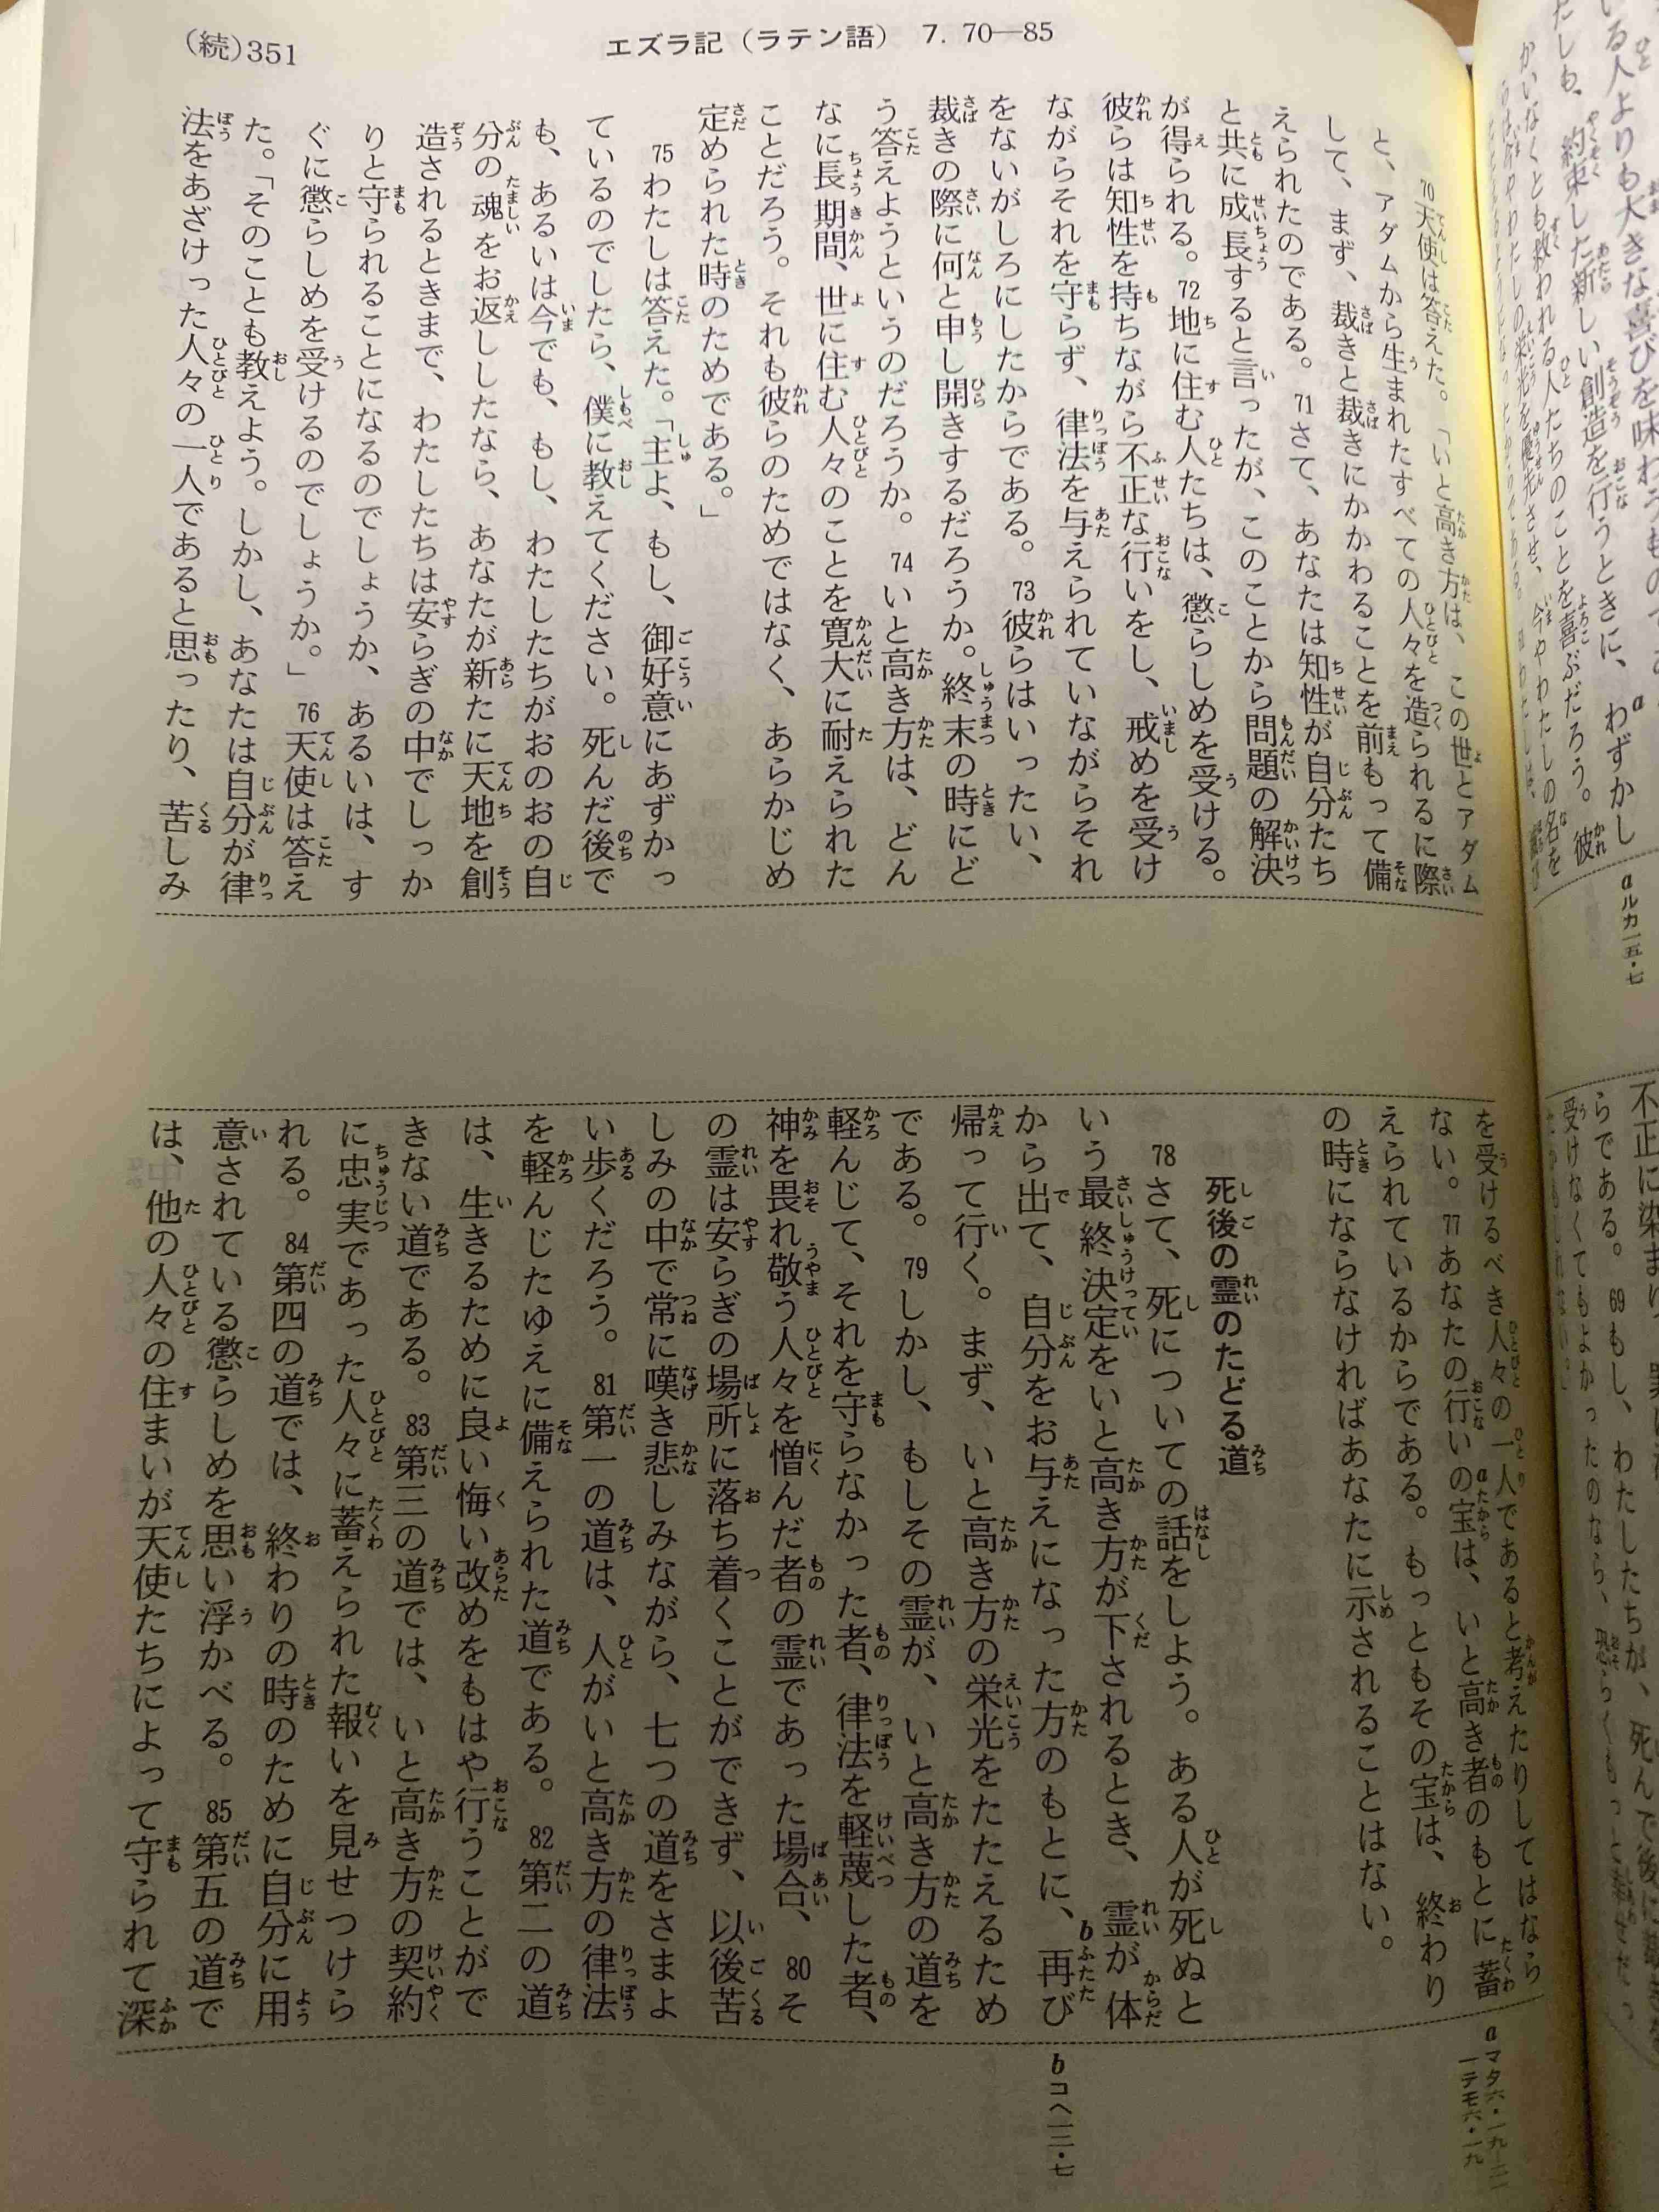 (続)351
エズラ記（ラテン語） 7. 70—85
70天使は答えた。「いと高き方は、この世とアダム
と、アダムから生まれたすべての人々を造られるに際
して、まず、裁きと裁きにかかわることを前もって備
えられたのである。71さて、あなたは知性が自分たち
と共に成長すると言ったが、このことから問題の解決
が得られる。72地に住む人たちは、懲らしめを受ける。
彼らは知性を持ちながら不正な行いをし、戒めを受け
ながらそれを守らず、律法を与えられていながらそれ
をないがしろにしたからである。73彼らはいったい、
裁きの際に何と申し開きするだろうか。終末の時にど
う答えようというのだろうか。74いと高き方は、どん
なに長期間、世に住む人々のことを寛大に耐えられた
ことだろう。それも彼らのためではなく、あらかじめ
定められた時のためである。」
75わたしは答えた。「主よ、もし、御好意にあずかっ
ているのでしたら、僕に教えてください。死んだ後で
も、あるいは今でも、もし、わたしたちがおのおの自
分の魂をお返ししたなら、あなたが新たに天地を創
造されるときまで、わたしたちは安らぎの中でしっか
りと守られることになるのでしょうか、あるいは、す
ぐに懲らしめを受けるのでしょうか。」76天使は答え
た。「そのことも教えよう。しかし、あなたは自分が律
法をあざけった人々の一人であると思ったり、苦しみ
を受けるべき人々の一人であると考えたりしてはなら
ない。77あなたの行いの宝は、いと高き者のもとに蓄
えられているからである。もっともその宝は、終わり
の時にならなければあなたに示されることはない。
死後の霊のたどる道
78さて、死についての話をしよう。ある人が死ぬと
いう最終決定をいと高き方が下されるとき、霊が体
から出て、自分をお与えになった方のもとに、再び
帰って行く。まず、いと高き方の栄光をたたえるため
である。79しかし、もしその霊が、いと高き方の道を
軽んじて、それを守らなかった者、律法を軽蔑した者、
神を畏れ敬う人々を憎んだ者の霊であった場合、80そ
の霊は安らぎの場所に落ち着くことができず、以後苦
しみの中で常に嘆き悲しみながら、七つの道をさまよ
い歩くだろう。81第一の道は、人がいと高き方の律法
を軽んじたゆえに備えられた道である。82第二の道
は、生きるために良い悔い改めをもはや行うことがで
きない道である。83第三の道では、いと高き方の契約
に忠実であった人々に蓄えられた報いを見せつけら
れる。84第四の道では、終わりの時のために自分に用
意されている懲らしめを思い浮かべる。85第五の道で
は、他の人々の住まいが天使たちによって守られて深
a マタ六・一九—二一
一テモ六・一九
b コヘ一二・七
a ルカ一五・七